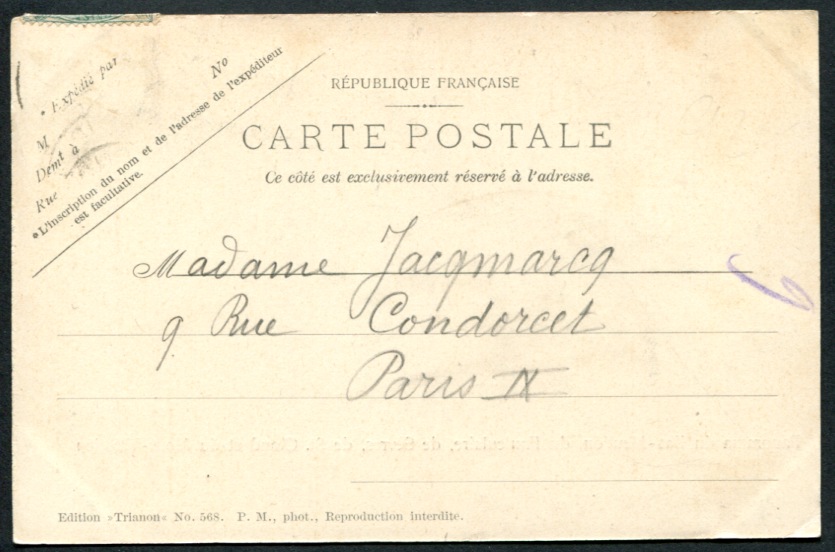 No
* Expédié par
M
Demt à
Rue
*L'inscription du nom et de l'adresse de l'expéditeur
est facultative.
RÉPUBLIQUE FRANÇAISE
CARTE POSTALE
Ce côté est exclusivement réservé à l'adresse.
Madame Jacqmarcq
9 Rue Condorcet
Paris IX
Edition »Trianon« No. 568. P. M., phot., Reproduction interdite.